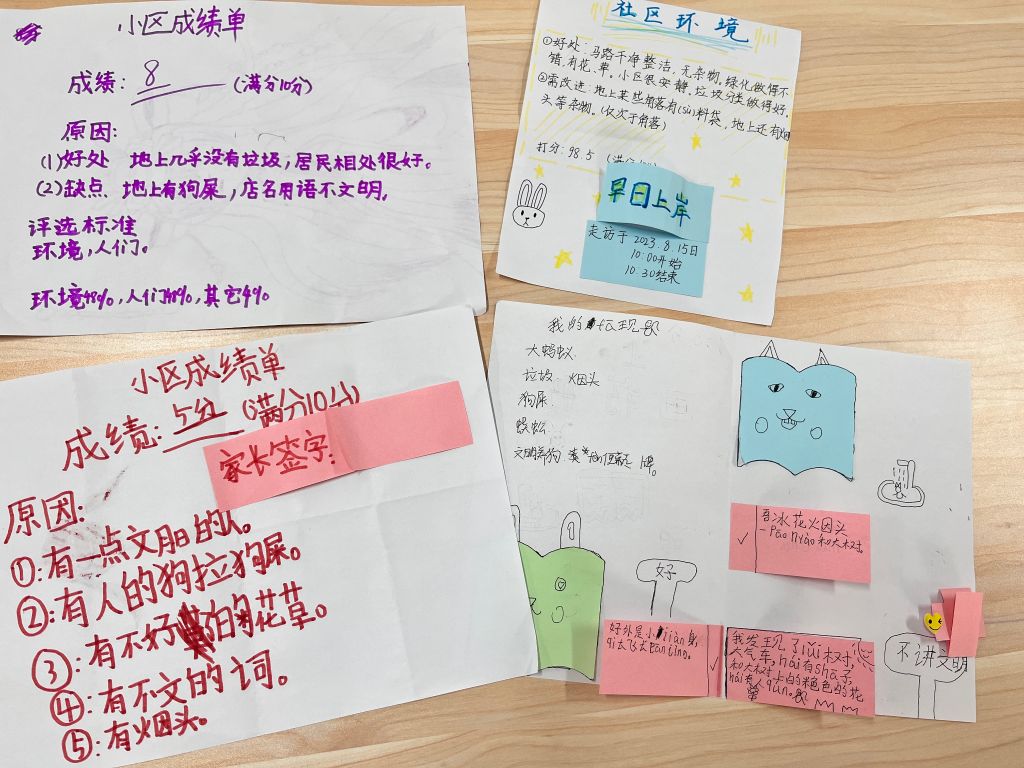 小区成绩单
成绩: 8 (满分10分)
原因:
(1)好处 地上几乎没有垃圾，居民相处很好。
(2)缺点 地上有狗屎，店名用语不文明。
评选标准
环境，人们。
环境48%，人们48%，其它4%
社区环境
①好处：马路干净整洁，无杂物。绿化做得不
错，有花、草。小区很安静。垃圾分类做得好。
②需改进：地上某些角落有(sù)料袋，地上还有烟
头等杂物。(依次于角落)
打分：98.5
早日上岸
走访于2023.8.15日
10:00开始
10:30结束
小区成绩单
成绩: 5分 (满分10分)
家长签字:
原因:
①:有一点文明的人。
②:有人的狗拉狗屎。
③:有不好的花草。
④:有不文的词。
⑤:有烟头。
我的发现
大蚂蚁
垃圾 烟头
狗屎
蜈蚣
文明养狗 牌。
花火因头
和大木对。
好
好处是小jiàn身
qì去飞去pān dēng。
我发现了liǔ木对，
大气车，hái有shā子，
和大木对上白勺米色色的花
hái有人qún。
不讲文明